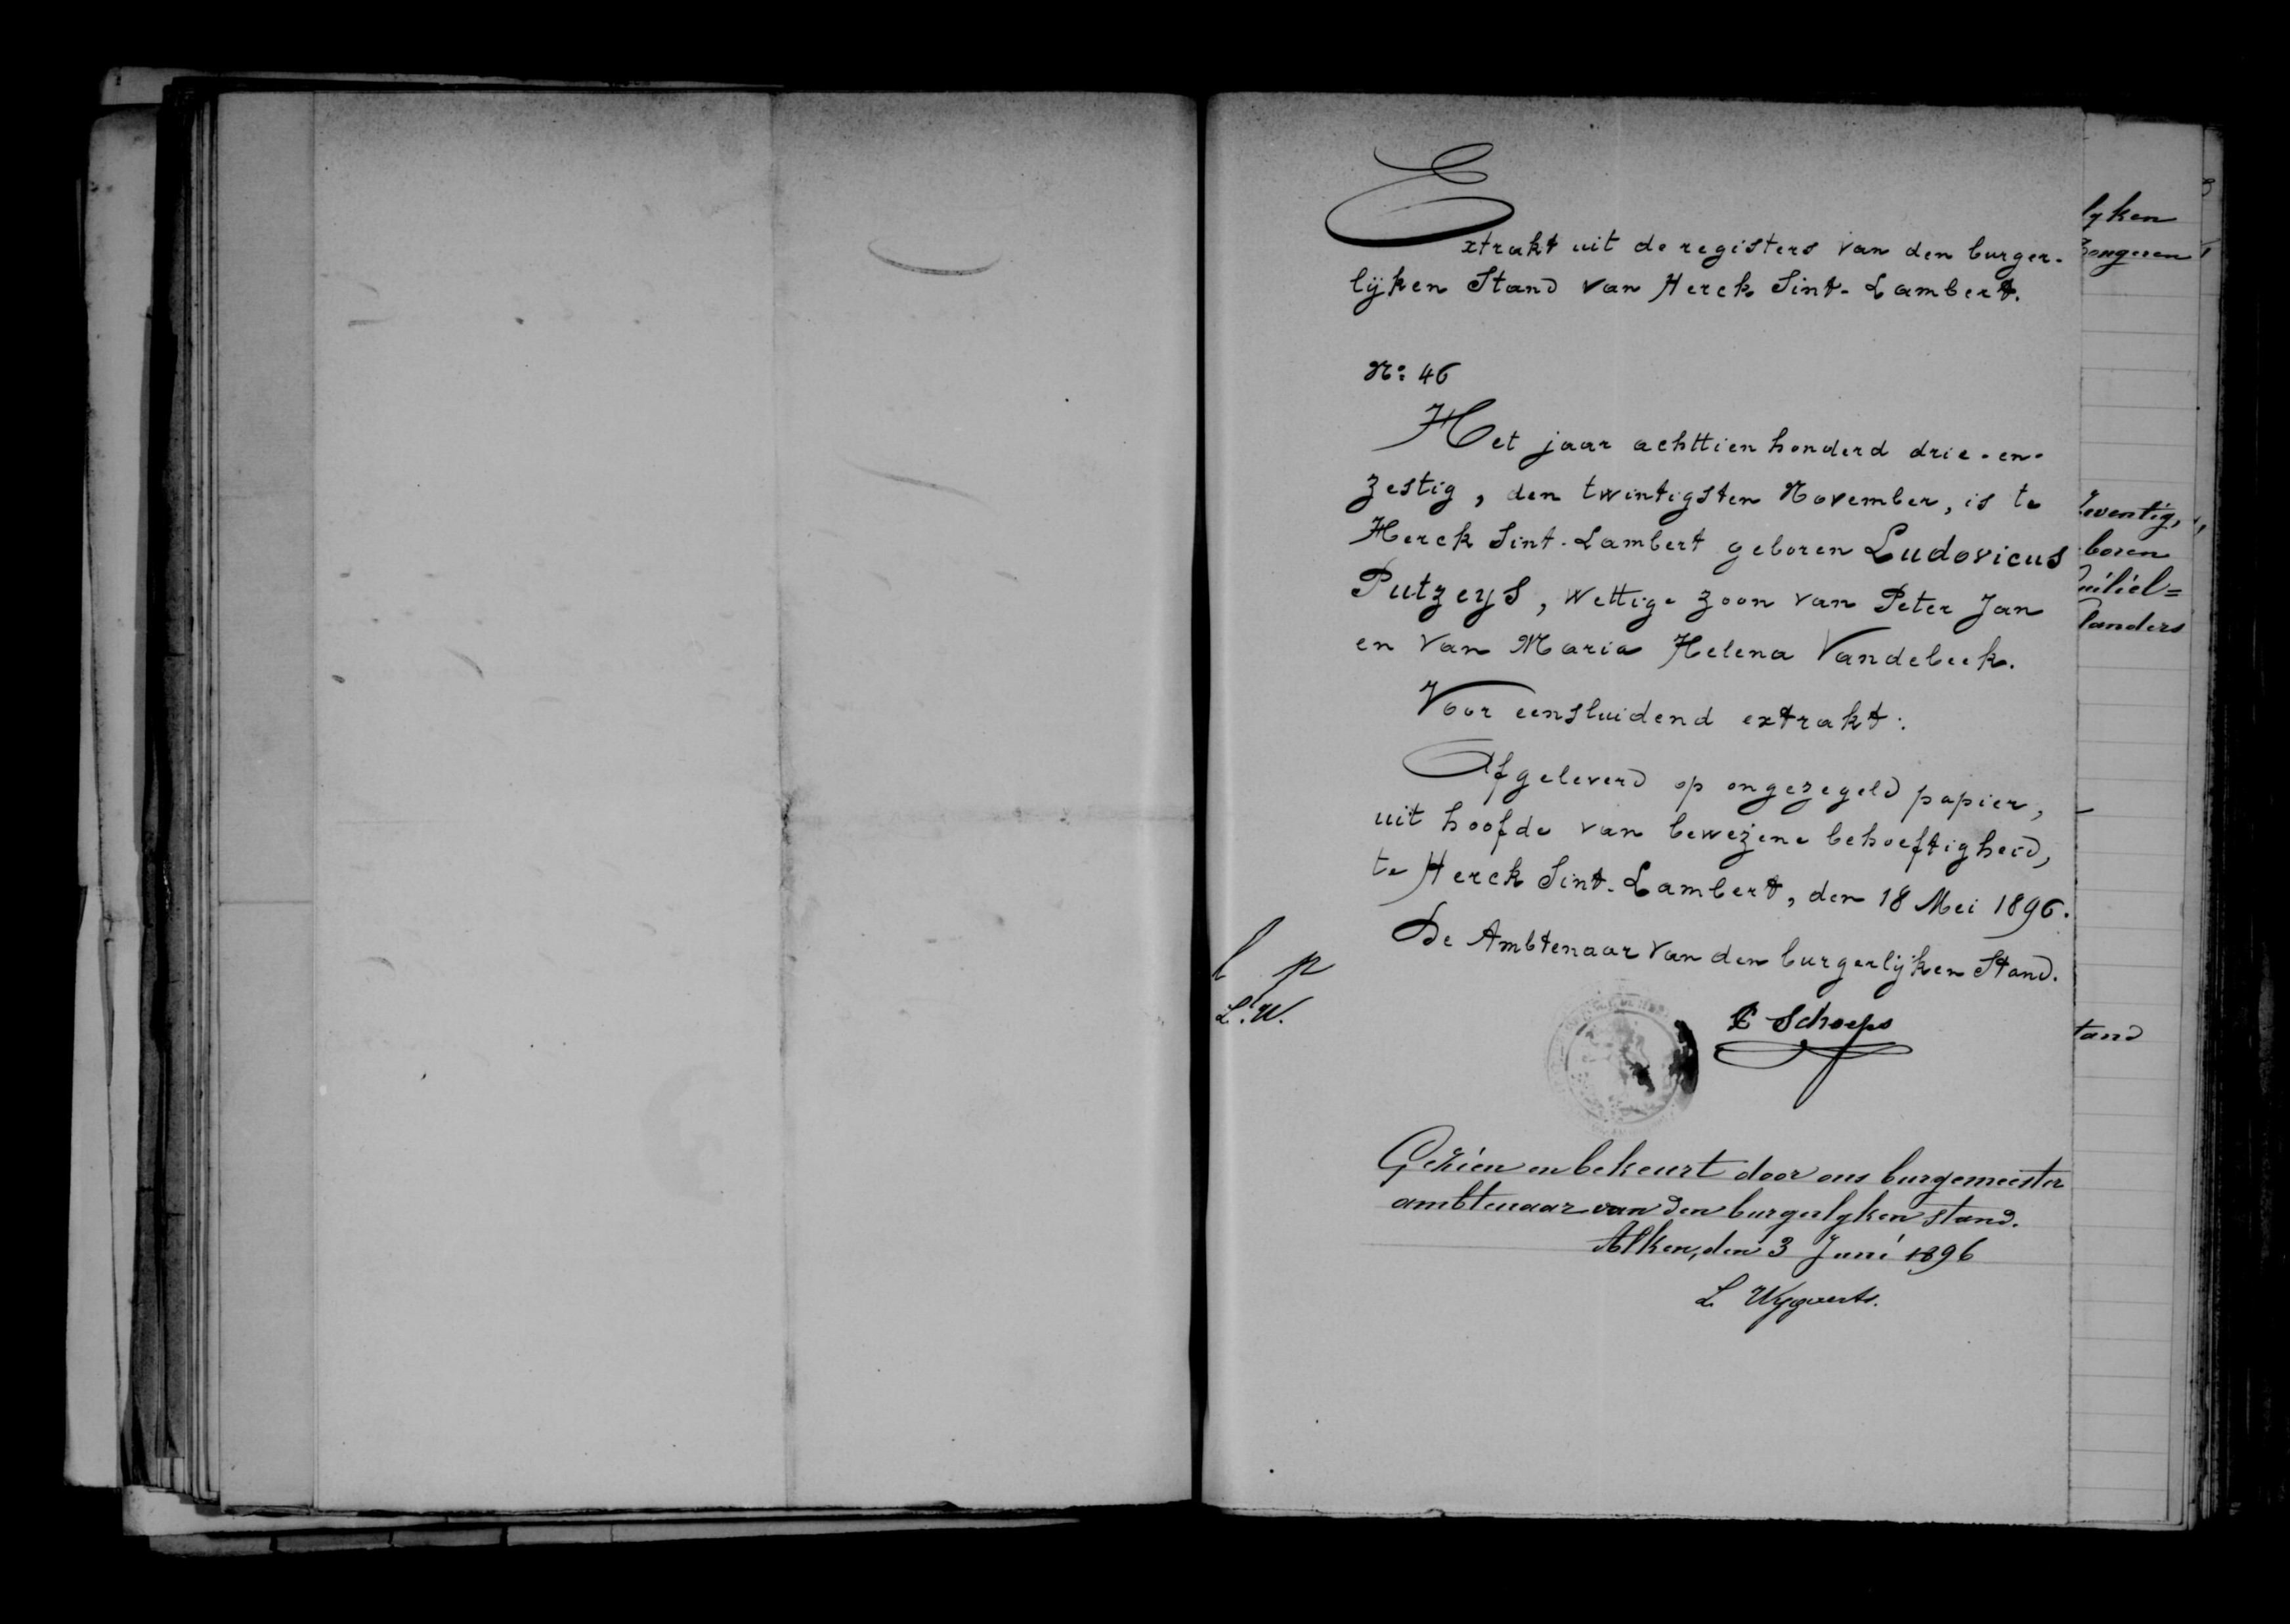 Extrakt uit de registers van den burger-
lijken Stand van Herck Sint-Lambert.
No: 46
Het jaar achttien honderd drie-en-
zestig, den twintigsten November, is te
Herck Sint-Lambert geboren Ludovicus
Putzeys, wettige zoon van Peter Jan
en van Maria Helena Vandebeek.
Voor eensluidend extrakt:
Afgeleverd op ongezegeld papier,
uit hoofde van bewezene behoeftigheid,
te Herck Sint-Lambert, den 18 Mei 1896.
De Ambtenaar van den burgerlijken Stand.
l p
L.W.
Schoeps
Gezien en bekeurt door ons burgemeester
ambtenaar van den burgerlyken stand.
Alken, den 3 Juni 1896
L Wygaerts.
lyken
Tongeren
zeventig,
boren
landers
tand